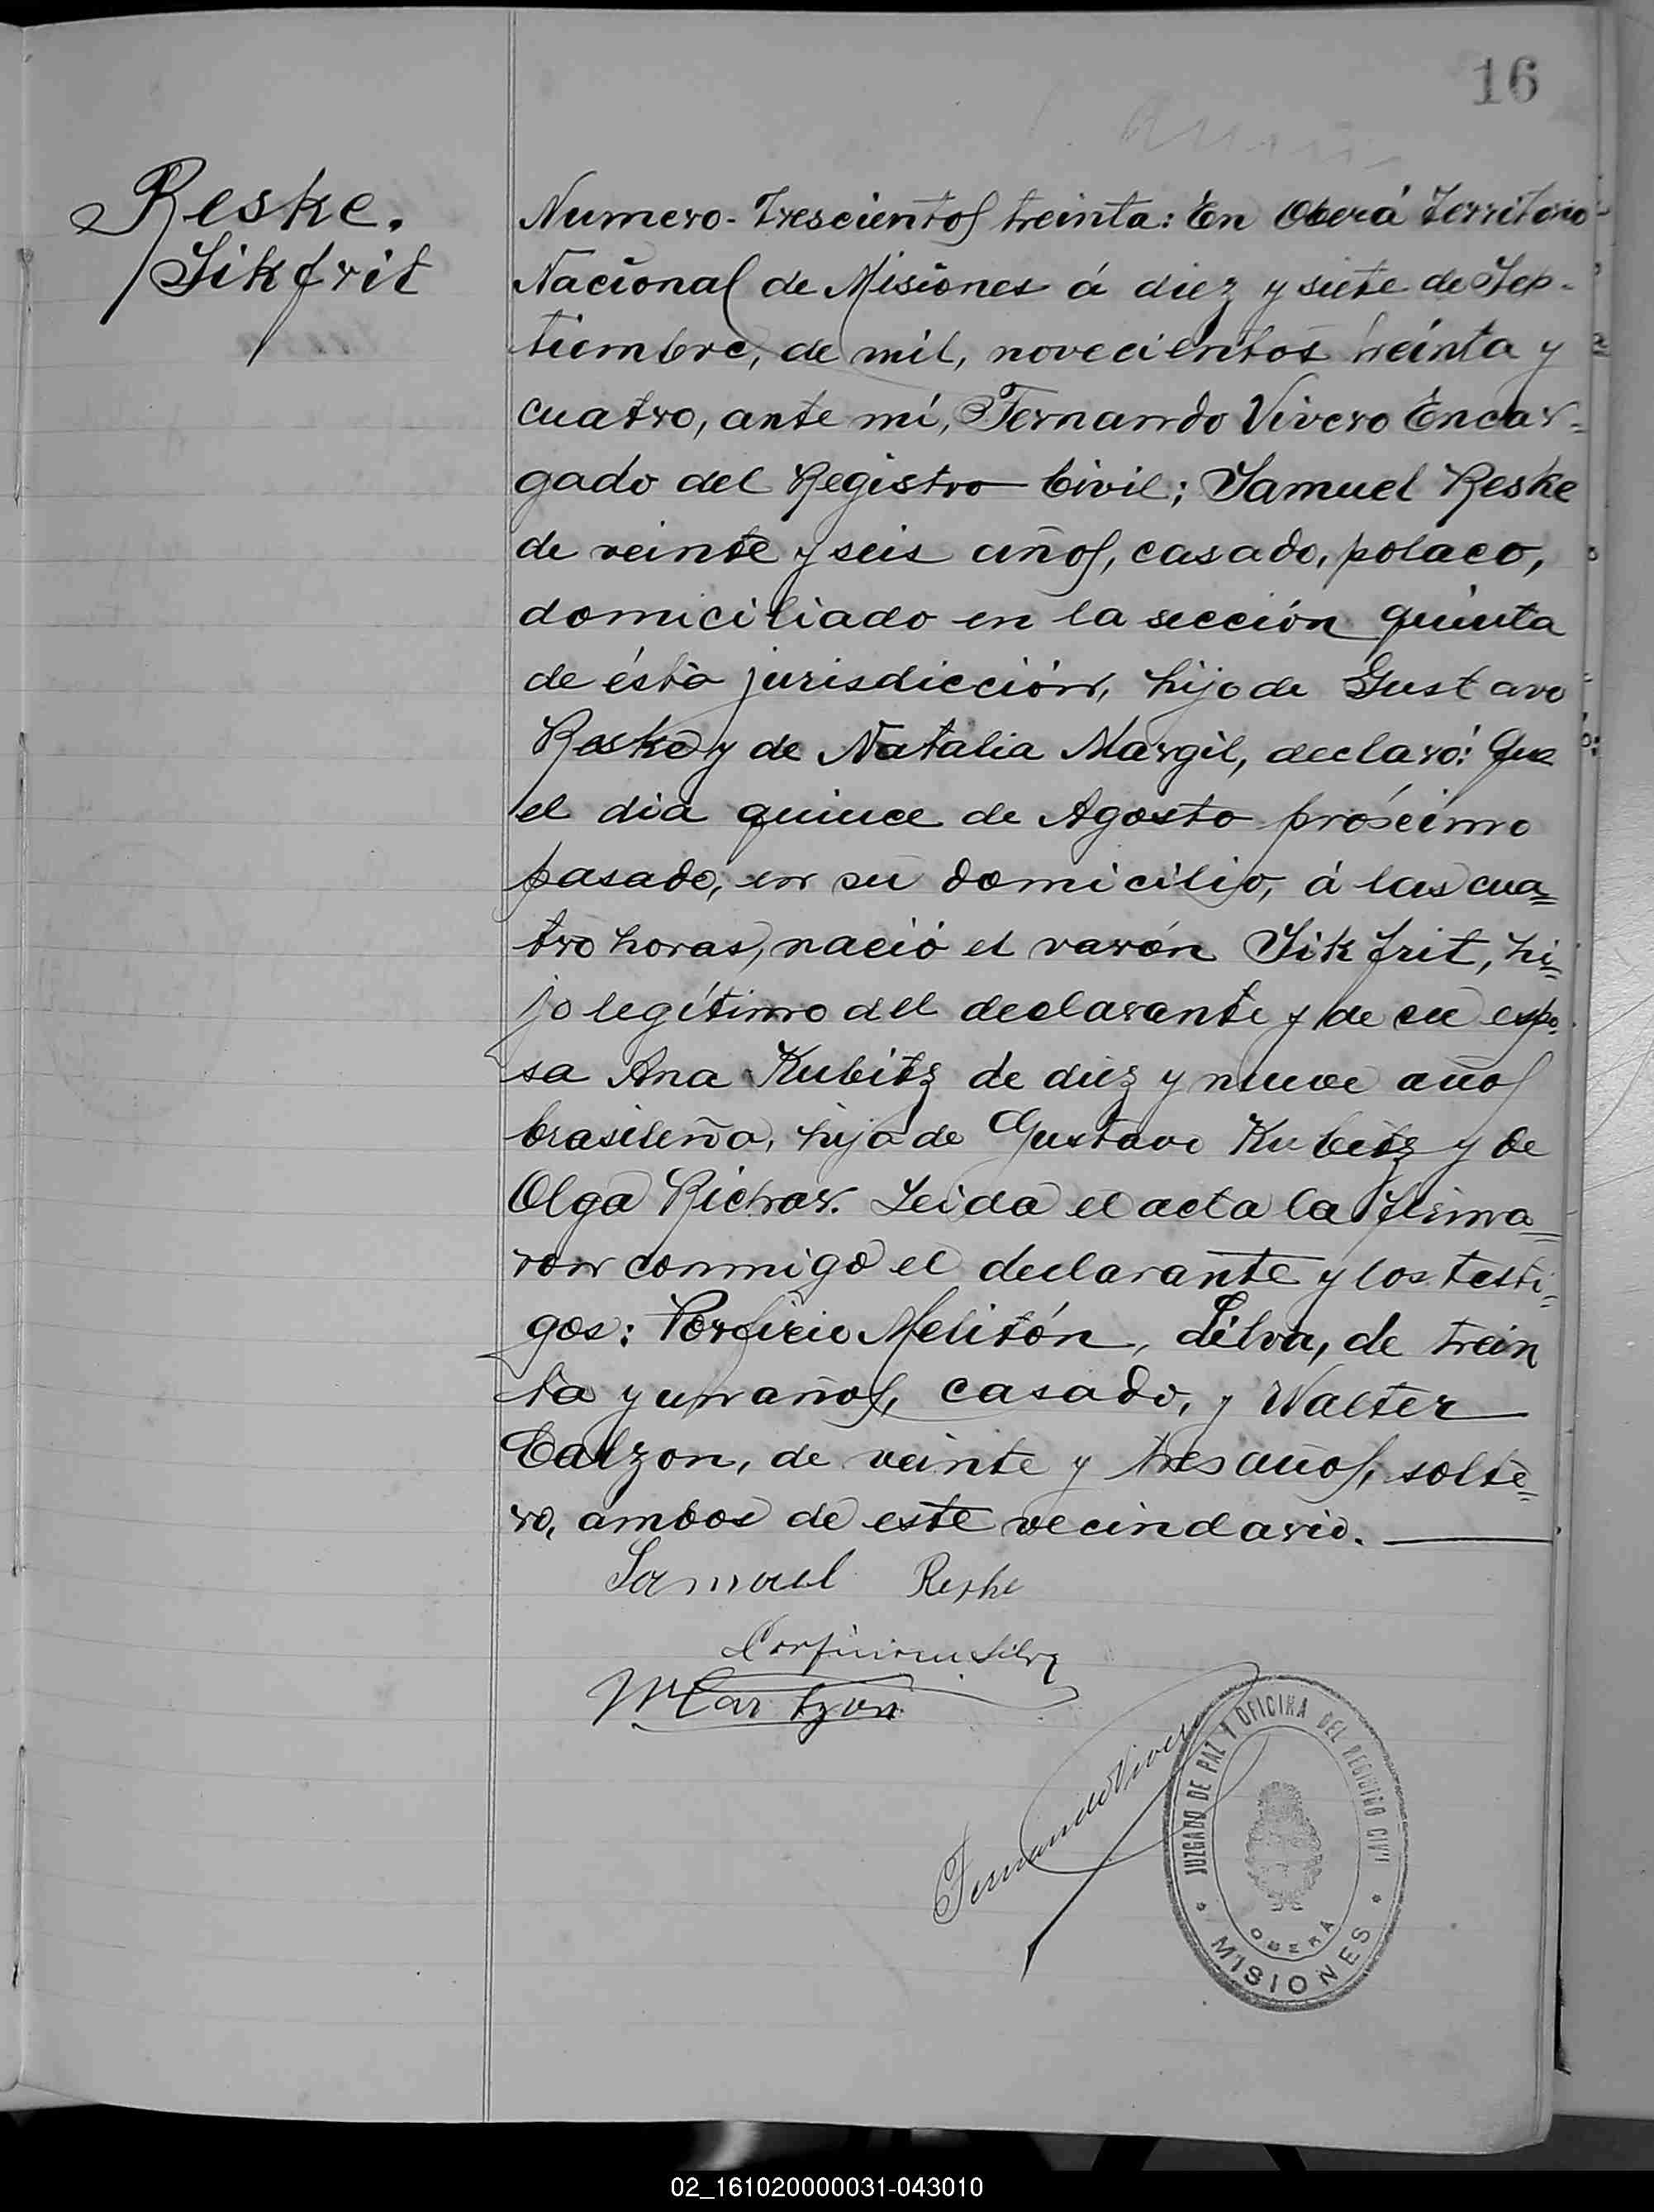 16
Reske.
Sikfrit
Numero-Trescientos treinta: En Oberá Territorio
Nacional de Misiones á diez y siete de Sep-
tiembre, de mil, novecientos treinta y
cuatro, ante mí, Fernando Vivero Encar=
gado del Registro Civil; Samuel Reske
de veinte y seis años, casado, polaco,
domiciliado en la sección quinta
de ésta jurisdicción, hijo de Gustavo
Reske y de Natalia Margil, declaró: Que
el dia quince de Agosto próximo
pasado, en su domicilio, á las cua=
tro horas, nació el varón Sikfrit, hi=
jo legítimo del declarante y de su espo-
sa Ana Kubitz de diez y nueve años
brasileña, hija de Gustavo Kubitz y de
Olga Richar. Leida el acta la firma=
ron conmigo el declarante y los testi=
gos: Porfirio Melitón, Silva, de trein
ta y un años, casado, y Walter
Calzon, de veinte y tres años, solte=
ro, ambos de este vecindario.
Samuel Reske
Silva
Fernando Vivero
JUZGADO DE PAZ Y OFICINA DEL REGISTRO CIVIL
OBERÁ
* MISIONES *
02_161020000031-043010